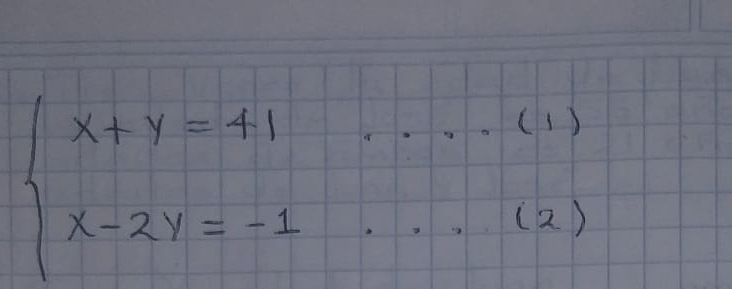 X+Y=41 .... (1)
X-2Y=-1 ... (2)